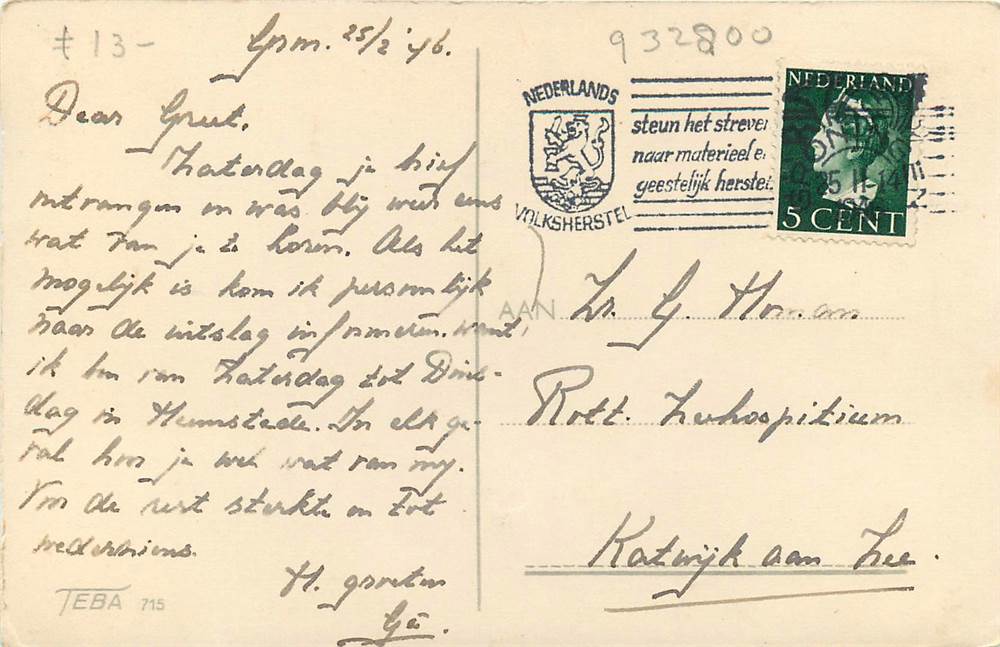 £ 13-
Gpm. 25/2 '46.
932800
Dear Greet.
Zaterdag je brief
ontvangen en was blij weer eens
wat van je te horen. Als het
mogelijk is kom ik persoonlijk
naar de uitslag informeren. want
ik ben van Zaterdag tot Dins-
dag in Heemstede. In elk ge-
val hoor je wel wat van mij.
Voor de rest sterkte en tot
wederziens.
H. groeten
Gé.
TEBA 715
NEDERLANDS
VOLKSHERSTEL
steun het streven
naar materieel en
geestelijk herstel
NEDERLAND
25 II-14
5 CENT
AAN Zr. G. Homan
Rott. Zeehospitium
Katwijk aan Zee.